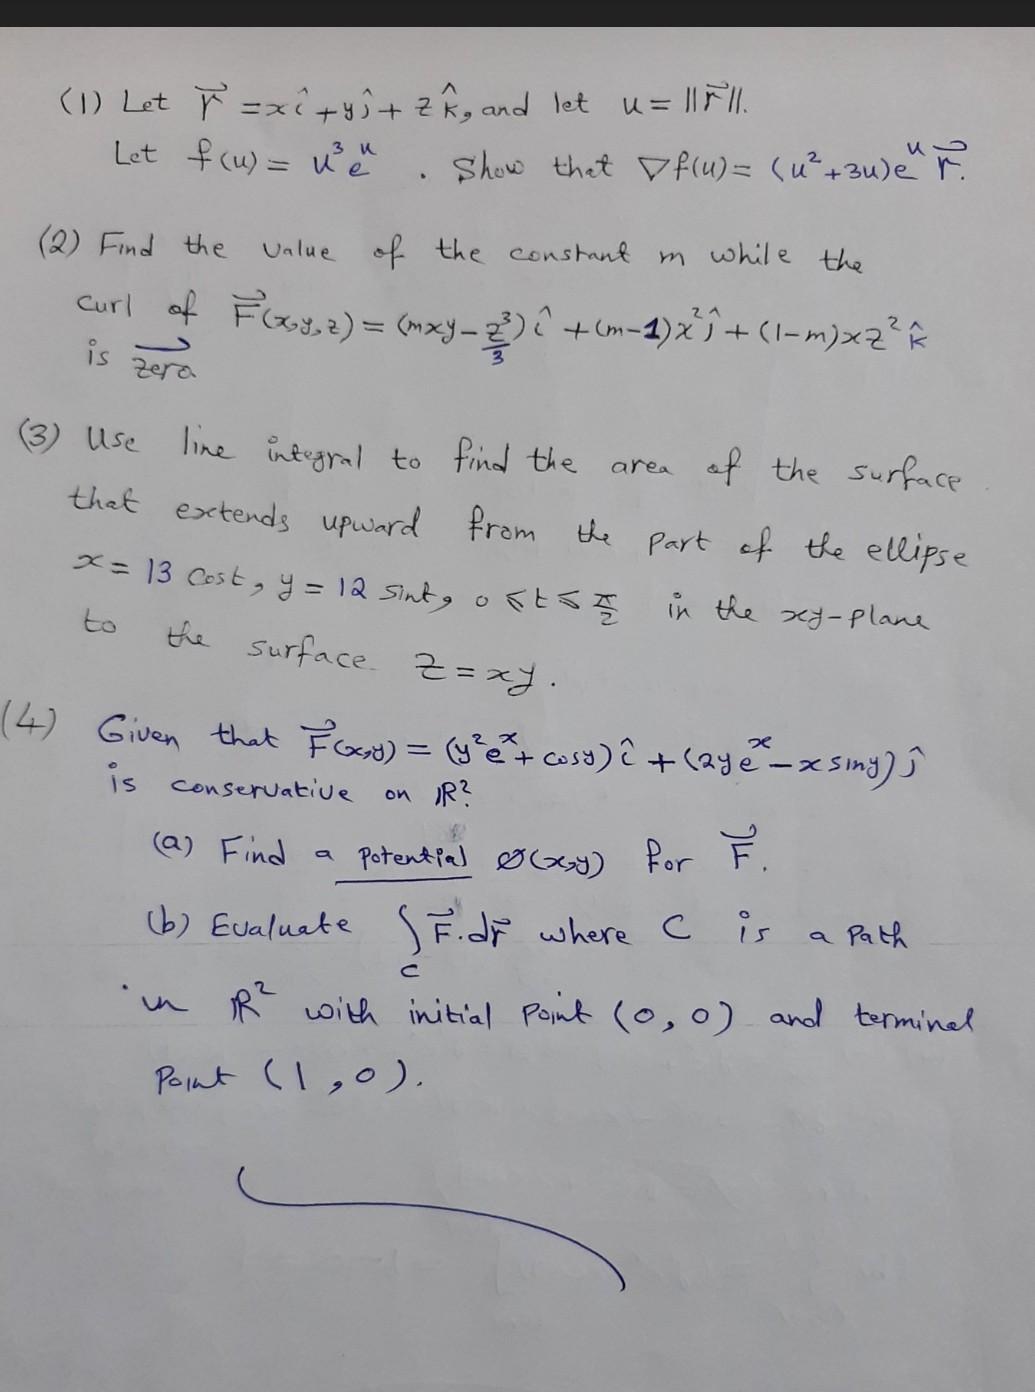 (1) Let r⃗ = xî + yĵ + zk̂, and let u = ||r⃗||.
Let f(u) = u³eᵘ . Show that ∇f(u) = (u²+3u)eᵘ r⃗.
(2) Find the value of the constant m while the
curl of F⃗(x,y,z) = (mxy - z³/3) î + (m-1)x² ĵ + (1-m)xz² k̂
is zero⃗
(3) Use line integral to find the area of the surface
that extends upward from the part of the ellipse
x = 13 cost, y = 12 sint, 0 ⩽ t ⩽ π/2 in the xy-plane
to the surface z = xy.
(4) Given that F⃗(x,y) = (y²eˣ + cosy) î + (2yeˣ - x siny) ĵ
is conservative on ℝ².
(a) Find a potential ∅(x,y) for F⃗.
(b) Evaluate ∫_C F⃗.dr⃗ where C is a path
in ℝ² with initial point (0,0) and terminal
point (1,0).